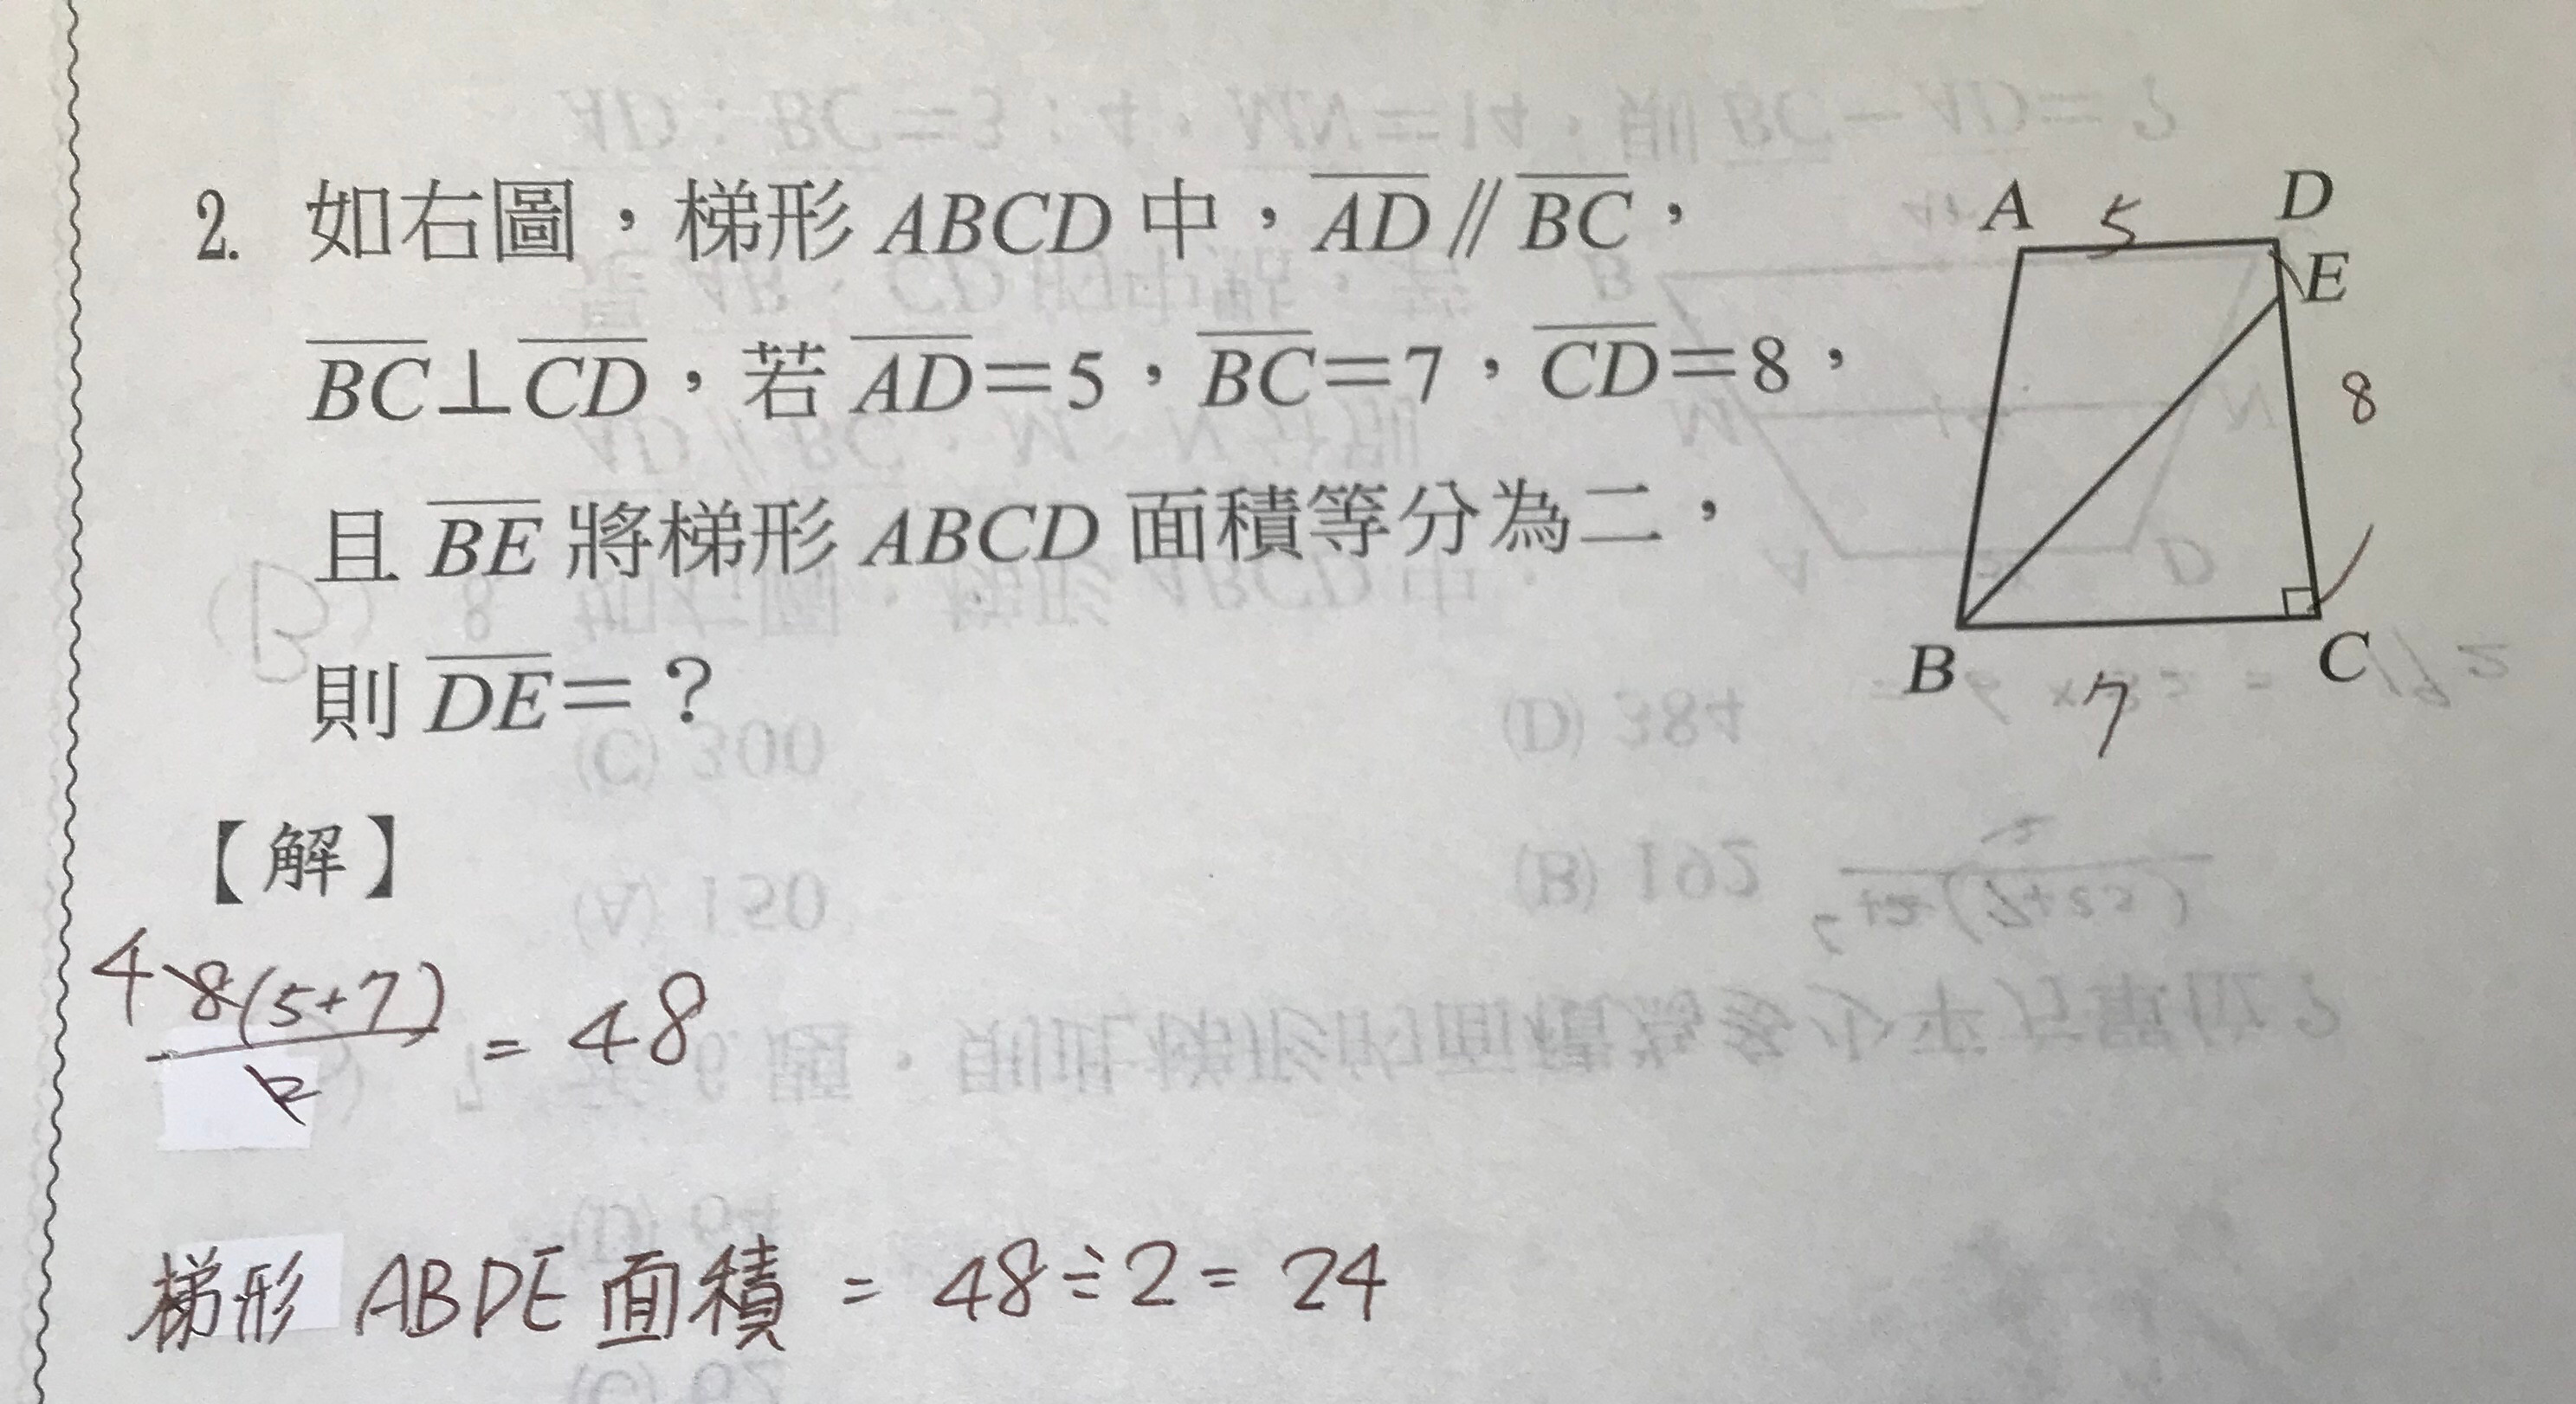 2. 如右圖，梯形 ABCD 中，AD // BC，
BC⊥CD，若 AD=5，BC=7，CD=8，
且 BE 將梯形 ABCD 面積等分為二，
則 DE=？
A 5 D
E
8
B
C
7
【解】
4 8(5+7)
= 48
2
梯形 ABDE 面積 = 48÷2 = 24